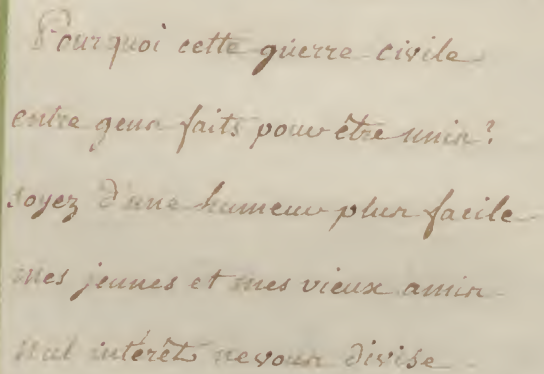 Pourquoi cette guerre civile
entre gens faits pour être unis?
soyez d'une humeur plus facile
mes jeunes et mes vieux amis
nul intérêt ne vous divise